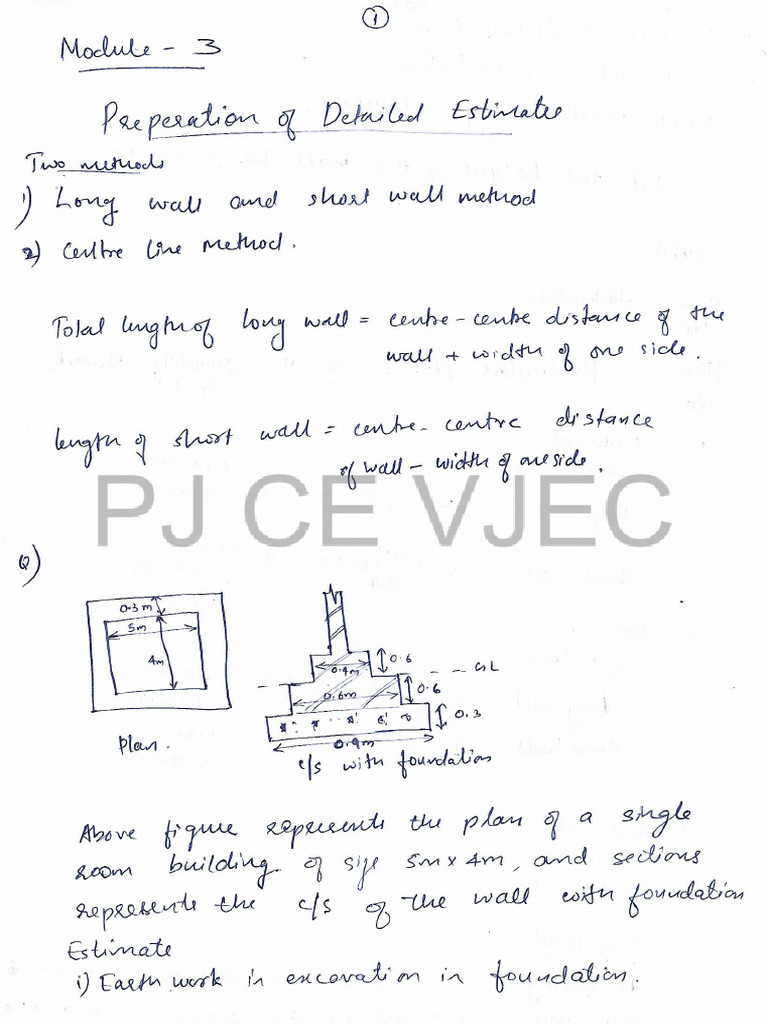 1
Module - 3
Preperation of Detailed Estimate
Two methods
1) Long wall and short wall method
2) Centre line method.
Total length of long wall = centre - centre distance of the
wall + width of one side.
length of short wall = centre - centre distance
of wall - width of one side.
PJ CE VJEC
Q)
0.3m
5m
4m
Plan.
0.6
0.4m
GL
0.6m
0.6
0.3
0.9m
c/s with foundation
Above figure represents the plan of a single
room building of size 5m x 4m, and sections
represents the c/s of the wall with foundation
Estimate
i) Earth work in excavation in foundation.